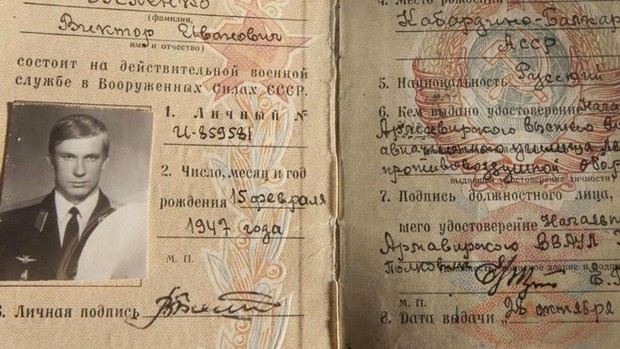 (фамилия,
Виктор Иванович
имя и отчество)
состоит на действительной военной
службе в Вооруженных Силах СССР.
1. Личный №
И-859581
2. Число, месяц и год
рождения 15 февраля
1947 года
М. П.
3. Личная подпись
4. Место рождения
Кабардино-Балкар
АССР
5. Национальность Русский
6. Кем выдано удостоверение
Армавирского
авиационного училища
противовоздушной обор
7. Подпись должностного лица,
шего удостоверение
Армавирского ВВАУЛ
Полковник
М. П.
8. Дата выдачи 28 октября